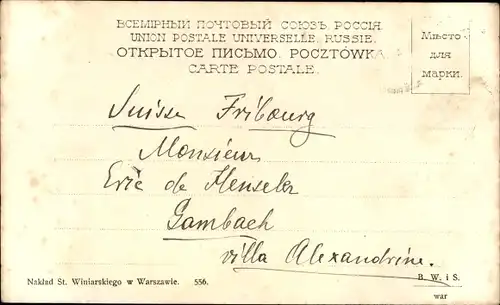 ВСЕМІРНЫЙ ПОЧТОВЫЙ СОЮЗЪ, РОССІЯ.
UNION POSTALE UNIVERSELLE, RUSSIE.
ОТКРЫТОЕ ПИСЬМО. POCZTÓWKA
CARTE POSTALE.
Мѣсто
для
марки.
Suisse Fribourg
Monsieur
Eric de Henseler
Gambach
villa Alexandrine.
Nakład St. Winiarskiego w Warszawie. 556.
B. W. i S.
war